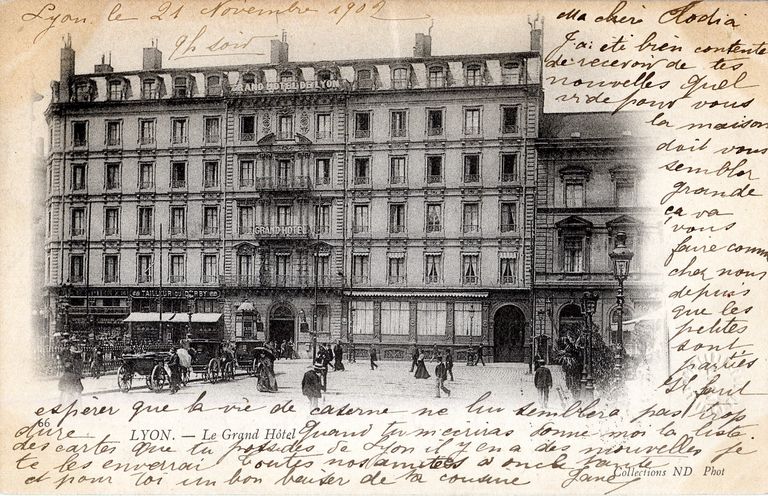 Lyon le 21 Novembre 1902
9h soir
Ma chère Clodia
J'ai été bien contente
de recevoir de tes
nouvelles quel
vide pour vous
la maison
doit vous
sembler
grande
ça va
vous
faire comme
chez nous
depuis
que les
petites
sont
parties
Il faut
espérer que la vie de caserne ne lui semblera pas trop
dure. Quand tu m'écriras donne moi la liste
des cartes que tu possèdes de Lyon il y en a des nouvelles je
te les enverrai Toutes nos amitiés à oncle tante
et pour toi un bon baiser de ta cousine
GRAND HOTEL DE LYON
GRAND HOTEL
TAILLEUR DERBY
66
LYON. — Le Grand Hôtel
Collections ND Phot